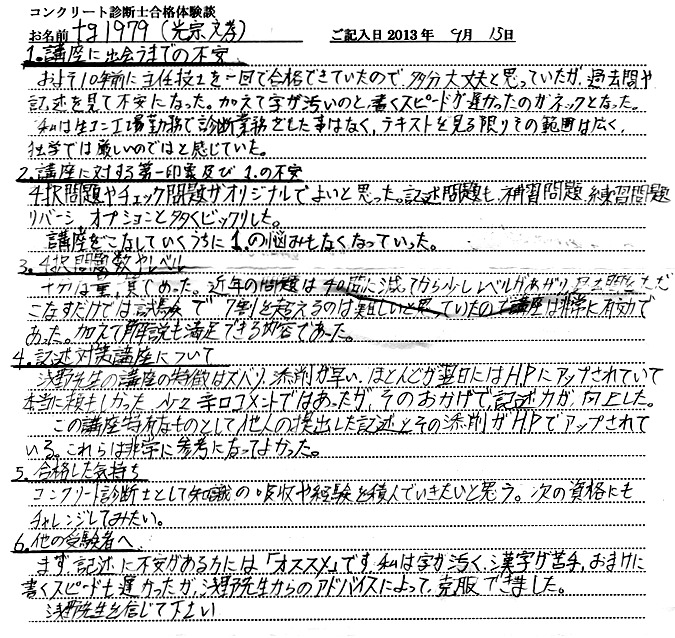 コンクリート診断士合格体験談
お名前 tg1979 (光宗文孝) ご記入日 2013年 9月 15日
1.講座に出会うまでの不安
およそ10年前に主任技士を一回で合格できていたので、多分大丈夫と思っていたが、過去問や
記述を見て不安になった。加えて字が汚いのと、書くスピードが遅かったのがネックとなった。
私は生コン工場勤務で診断業務をした事はなく、テキストを見る限りその範囲は広く、
独学では厳しいのではと感じていた。
2.講座に対する第一印象及び 1.の不安
4択問題やチェック問題がオリジナルでよいと思った。記述問題も、補習問題、練習問題
リバーシ オプションと多くビックリした。
講座をこなしていくうちに 1.の悩みもなくなっていった。
3.4択問題数やレベル
十分な量、質であった。近年の問題は40問に減ってから少しレベルがあがり、過去問をただ
こなすだけでは試験で7割を超えるのは難しいと思っていたので講座は非常に有効で
あった。加えて解説も満足できる内容であった。
4.記述対策講座について
浅野先生の講座の特徴はズバリ、添削が早い、ほとんどが翌日にはHPにアップされていて
本当に頼もしかった 少々辛口コメントではあったが、そのおかげで、記述力が向上した。
この講座特有なものとして他人の提出した記述とその添削がHPでアップされて
いる。これらは非常に参考になってよかった。
5.合格した気持ち
コンクリート診断士として知識の吸収や経験を積んでいきたいと思う。次の資格にも
チャレンジしてみたい。
6.他の受験者へ
まず、記述に不安がある方には「オススメ」です。私は字が汚く、漢字が苦手、おまけに
書くスピードも遅かったが、浅野先生からのアドバイスによって、克服できました。
浅野先生を信じて下さい